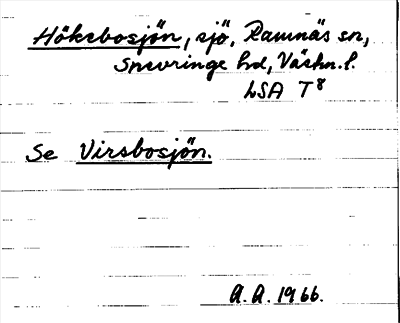 Hökebosjön, sjö, Ramnäs sn,
Snevringe hd, Västm. l.
LSA T⁸
Se Virsbosjön.
A.A. 1966.